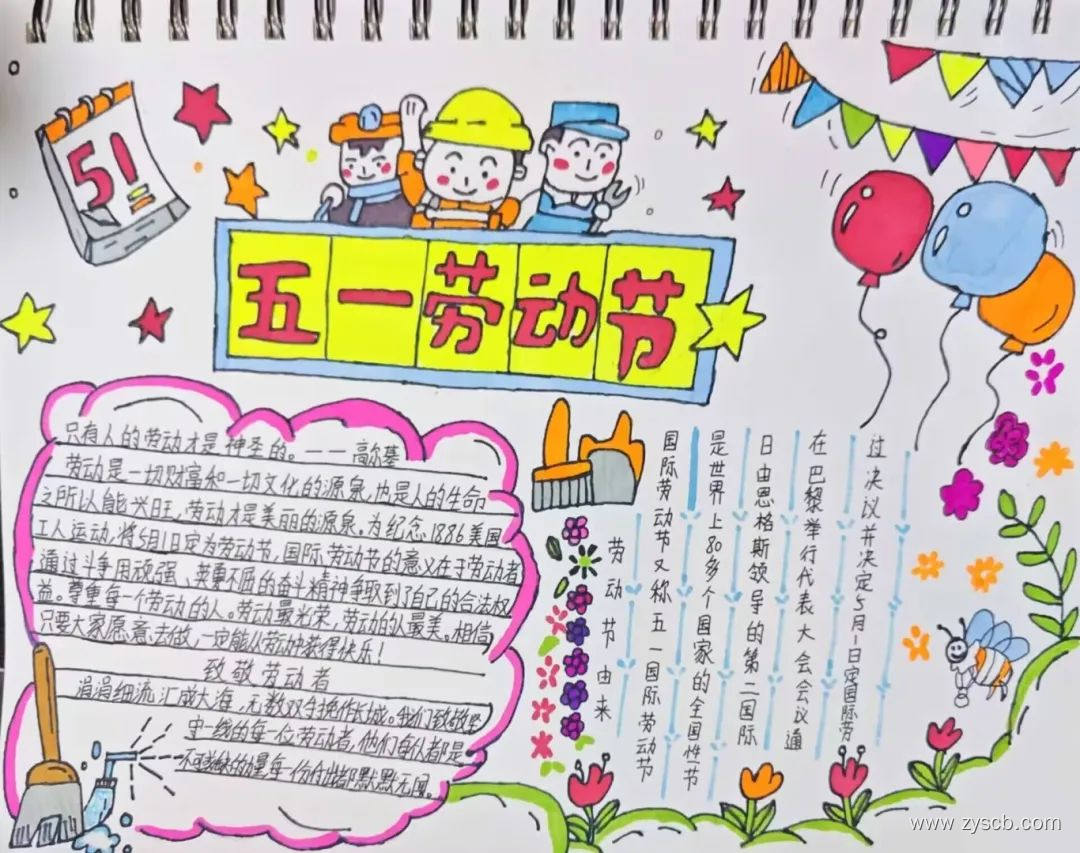 51
五一劳动节
只有人的劳动才是神圣的。——高尔基
劳动是一切财富和一切文化的源泉,也是人的生命
之所以能兴旺,劳动才是美丽的源泉。为纪念1886美国
工人运动,将5月1日定为劳动节,国际劳动节的意义在于劳动者
通过斗争用顽强、英勇不屈的奋斗精神争取到了自己的合法权
益。尊重每一个劳动的人。劳动最光荣,劳动的人最美。相信
只要大家愿意去做,一定能从劳动中获得快乐!
致敬劳动者
涓涓细流汇成大海,无数双手挽作长城。我们致敬坚
守一线的每一位劳动者,他们每人都是
不可或缺的星每一份付出都默默无闻。
劳动节由来
国际劳动节又称五一国际劳动节
是世界上80多个国家的全国性节
日由恩格斯领导的第二国际
在巴黎举行代表大会会议通
过决议并决定5月1日定国际劳
www.zyscb.com